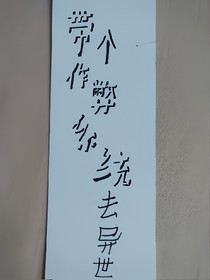 带个作弊系统去异世